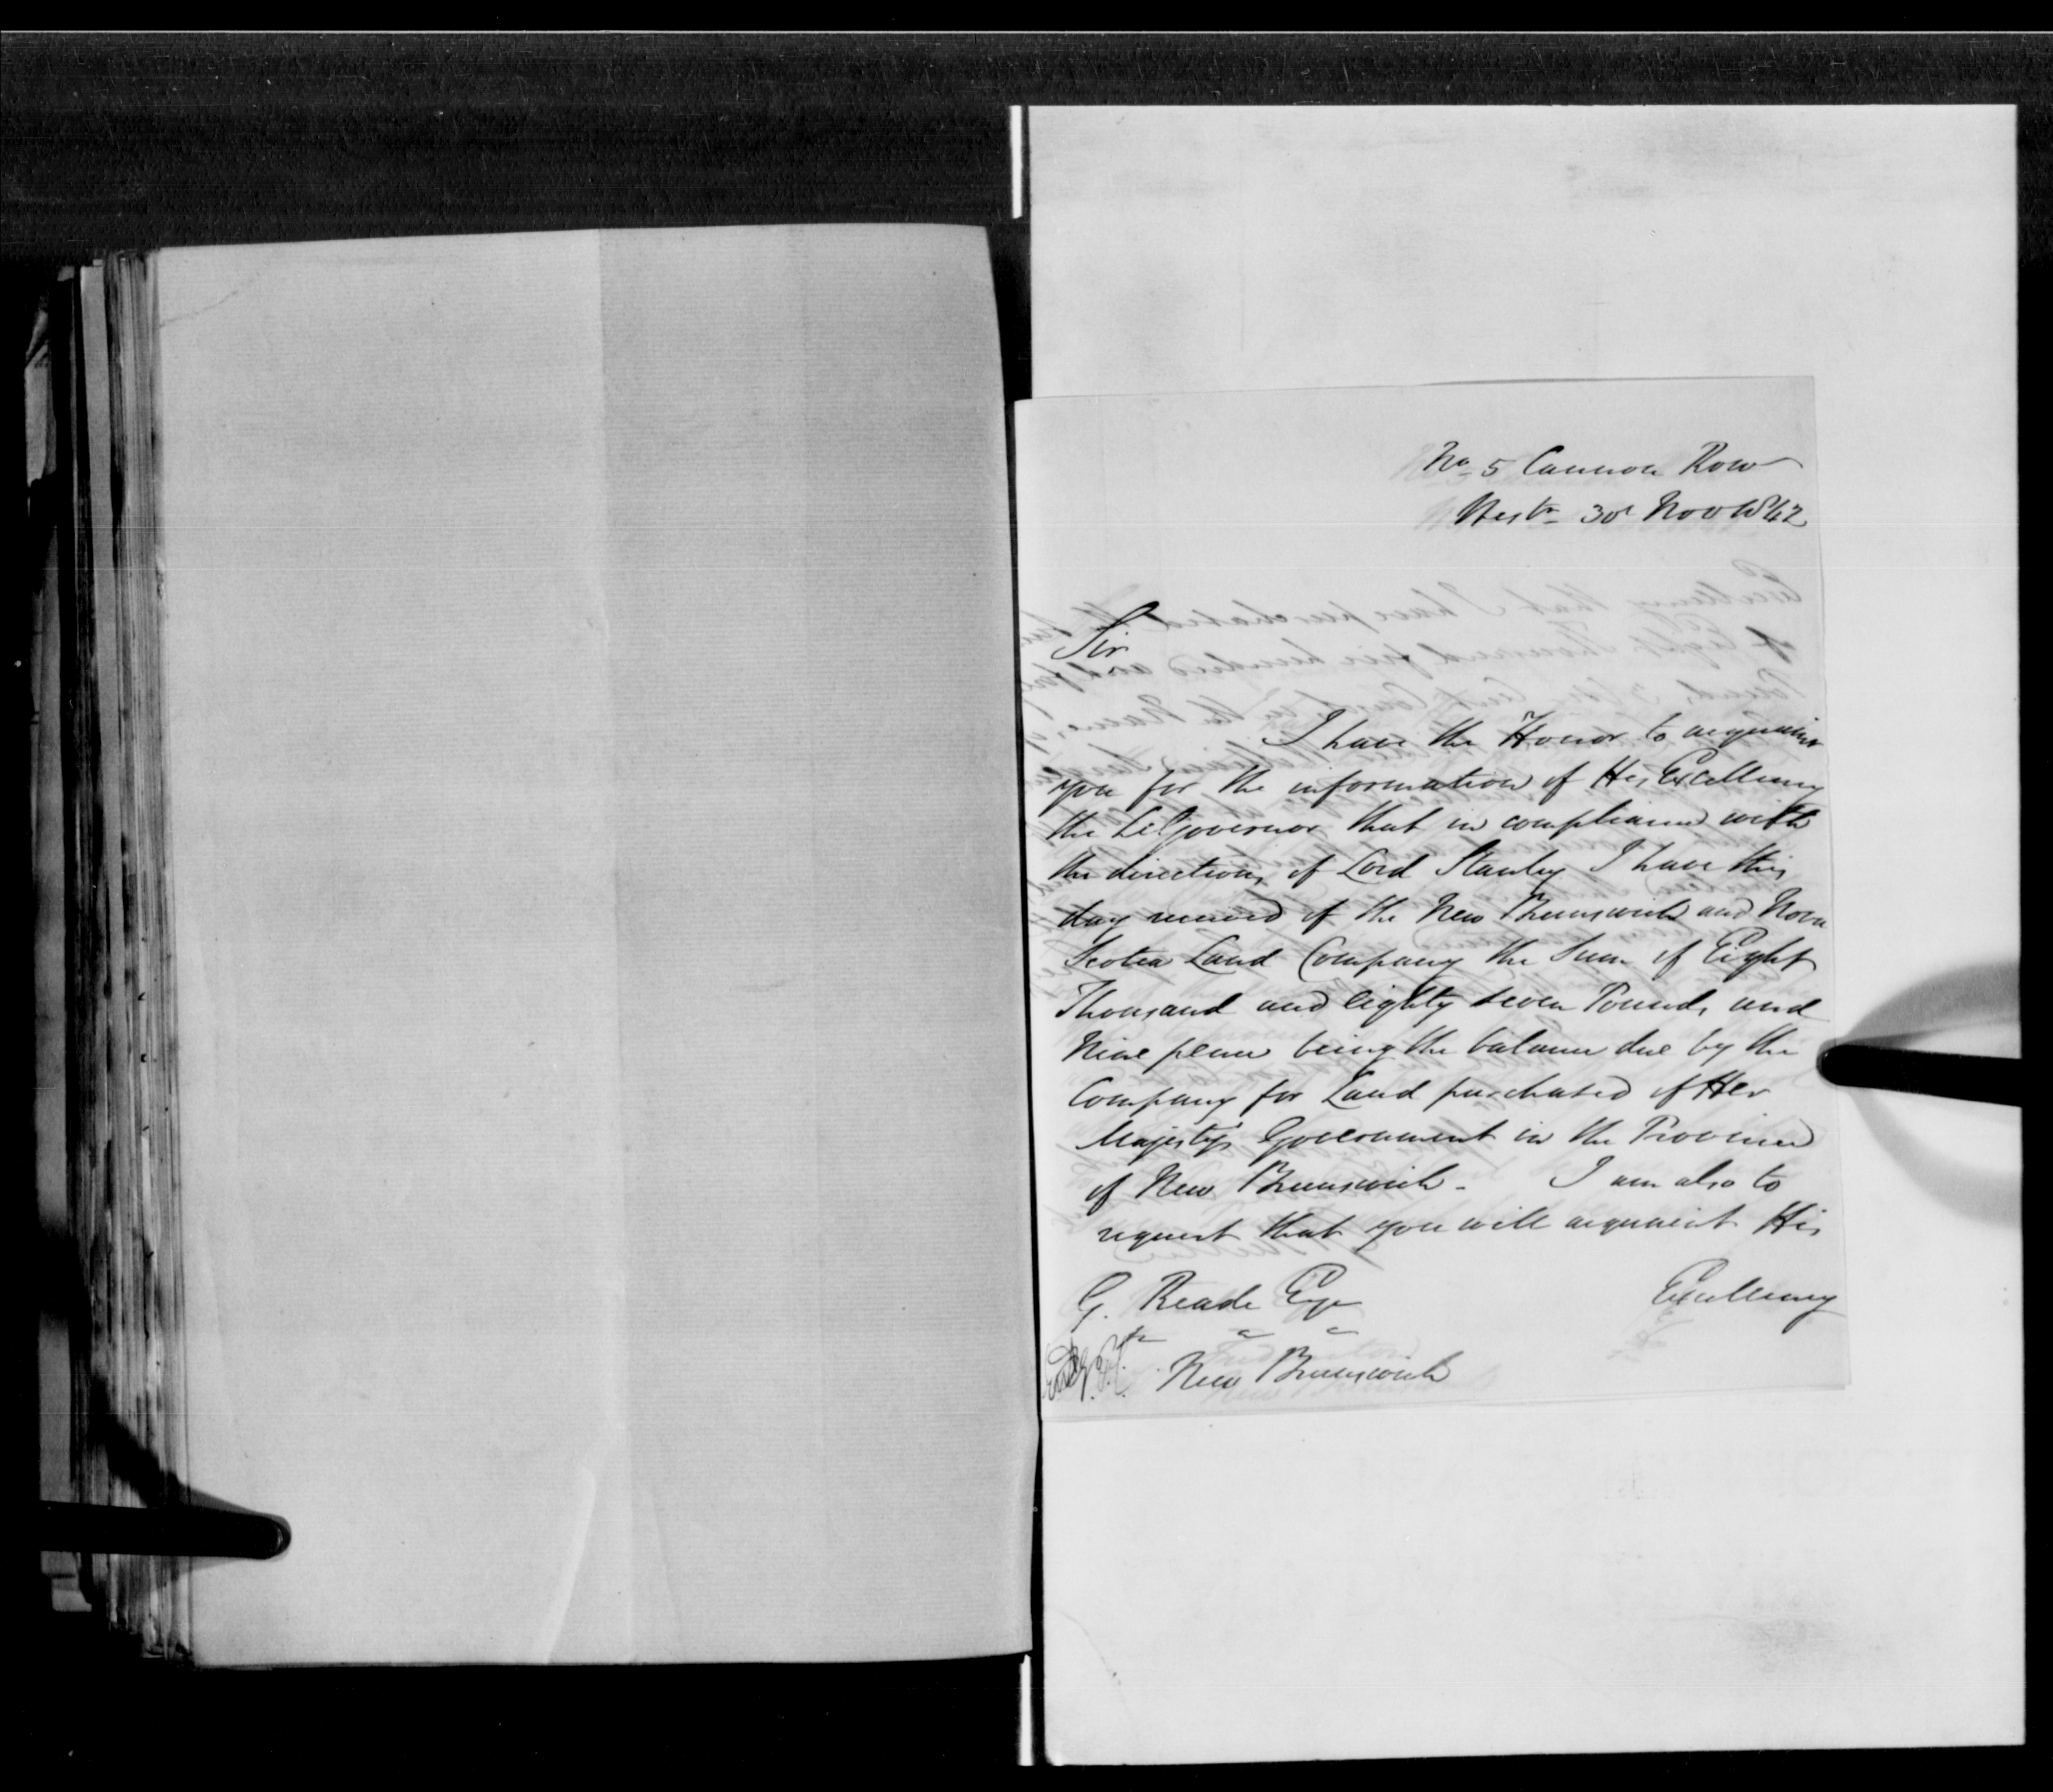 No 5 Cannon Row
Westr 30 Nov 1842
Sir
I have the Honor to acquaint
you for the information of His Excellency
the Lt Governor that in compliance with
the directions of Lord Stanley I have this
day received of the New Brunswick and Nova
Scotia Land Company the Sum of Eight
Thousand and eighty seven Pounds and
Nine pence being the balance due by the
Company for Land purchased of Her
Majesty's Government in the Province
of New Brunswick - I am also to
request that you will acquaint His
Excellency
G. Reade Esqr
New Brunswick